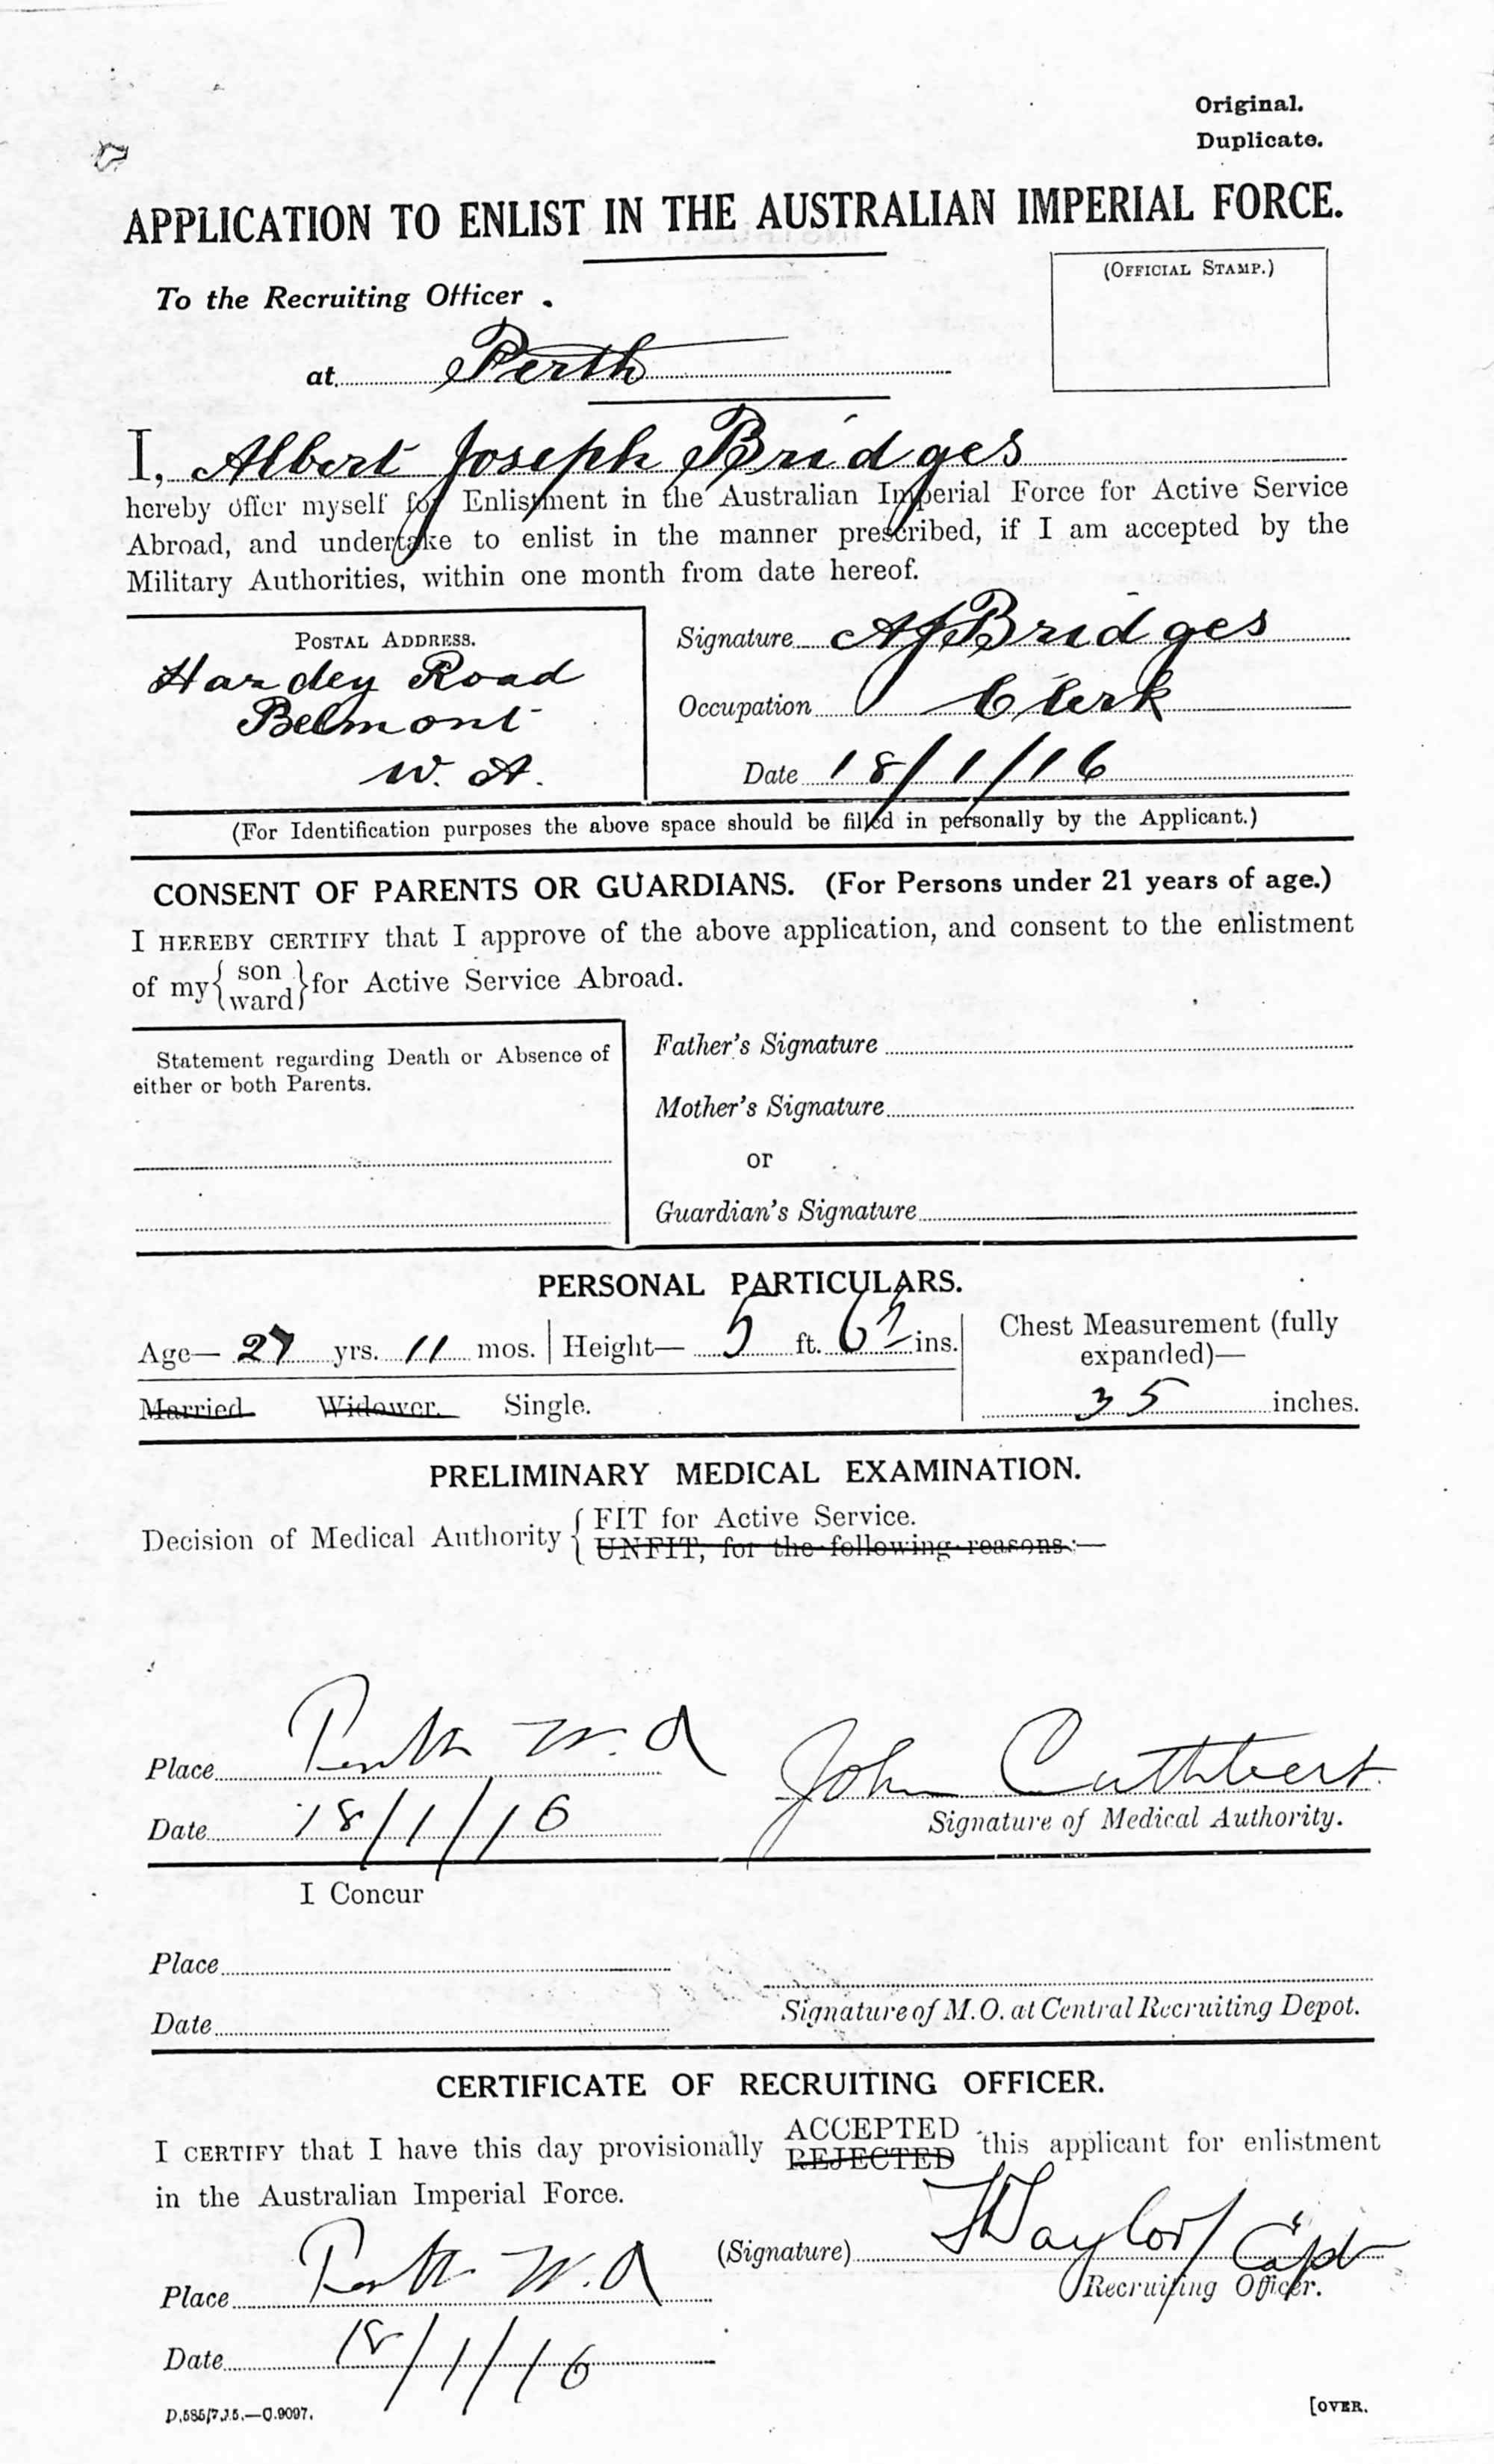 Original.
Duplicate.
APPLICATION TO ENLIST IN THE AUSTRALIAN IMPERIAL FORCE.
(OFFICIAL STAMP.)
To the Recruiting Officer
at Perth
I, Albert Joseph Bridges
hereby offer myself for Enlistment in the Australian Imperial Force for Active Service
Abroad, and undertake to enlist in the manner prescribed, if I am accepted by the
Military Authorities, within one month from date hereof.
POSTAL ADDRESS.
Hardey Road
Belmont
W. A.
Signature AJBridges
Occupation Clerk
Date 18/1/16
(For Identification purposes the above space should be filled in personally by the Applicant.)
CONSENT OF PARENTS OR GUARDIANS. (For Persons under 21 years of age.)
I HEREBY CERTIFY that I approve of the above application, and consent to the enlistment
of my { son ward } for Active Service Abroad.
Statement regarding Death or Absence of
either or both Parents.
Father's Signature
Mother's Signature
or
Guardian's Signature
PERSONAL PARTICULARS.
Age— 27 yrs. 11 mos. Height— 5 ft. 6½ ins.
Married Widower. Single.
Chest Measurement (fully
expanded)—
35 inches.
PRELIMINARY MEDICAL EXAMINATION.
Decision of Medical Authority { FIT for Active Service.
UNFIT, for the following reasons:—
Place Perth W.A
Date 18/1/16
John Cuthbert
Signature of Medical Authority.
I Concur
Place
Date
Signature of M.O. at Central Recruiting Depot.
CERTIFICATE OF RECRUITING OFFICER.
I CERTIFY that I have this day provisionally ACCEPTED REJECTED this applicant for enlistment
in the Australian Imperial Force.
(Signature) Taylor Capt
Recruiting Officer.
Place Perth W.A
Date 18/1/16
D.585/7.15.—C.9097.
[OVER.